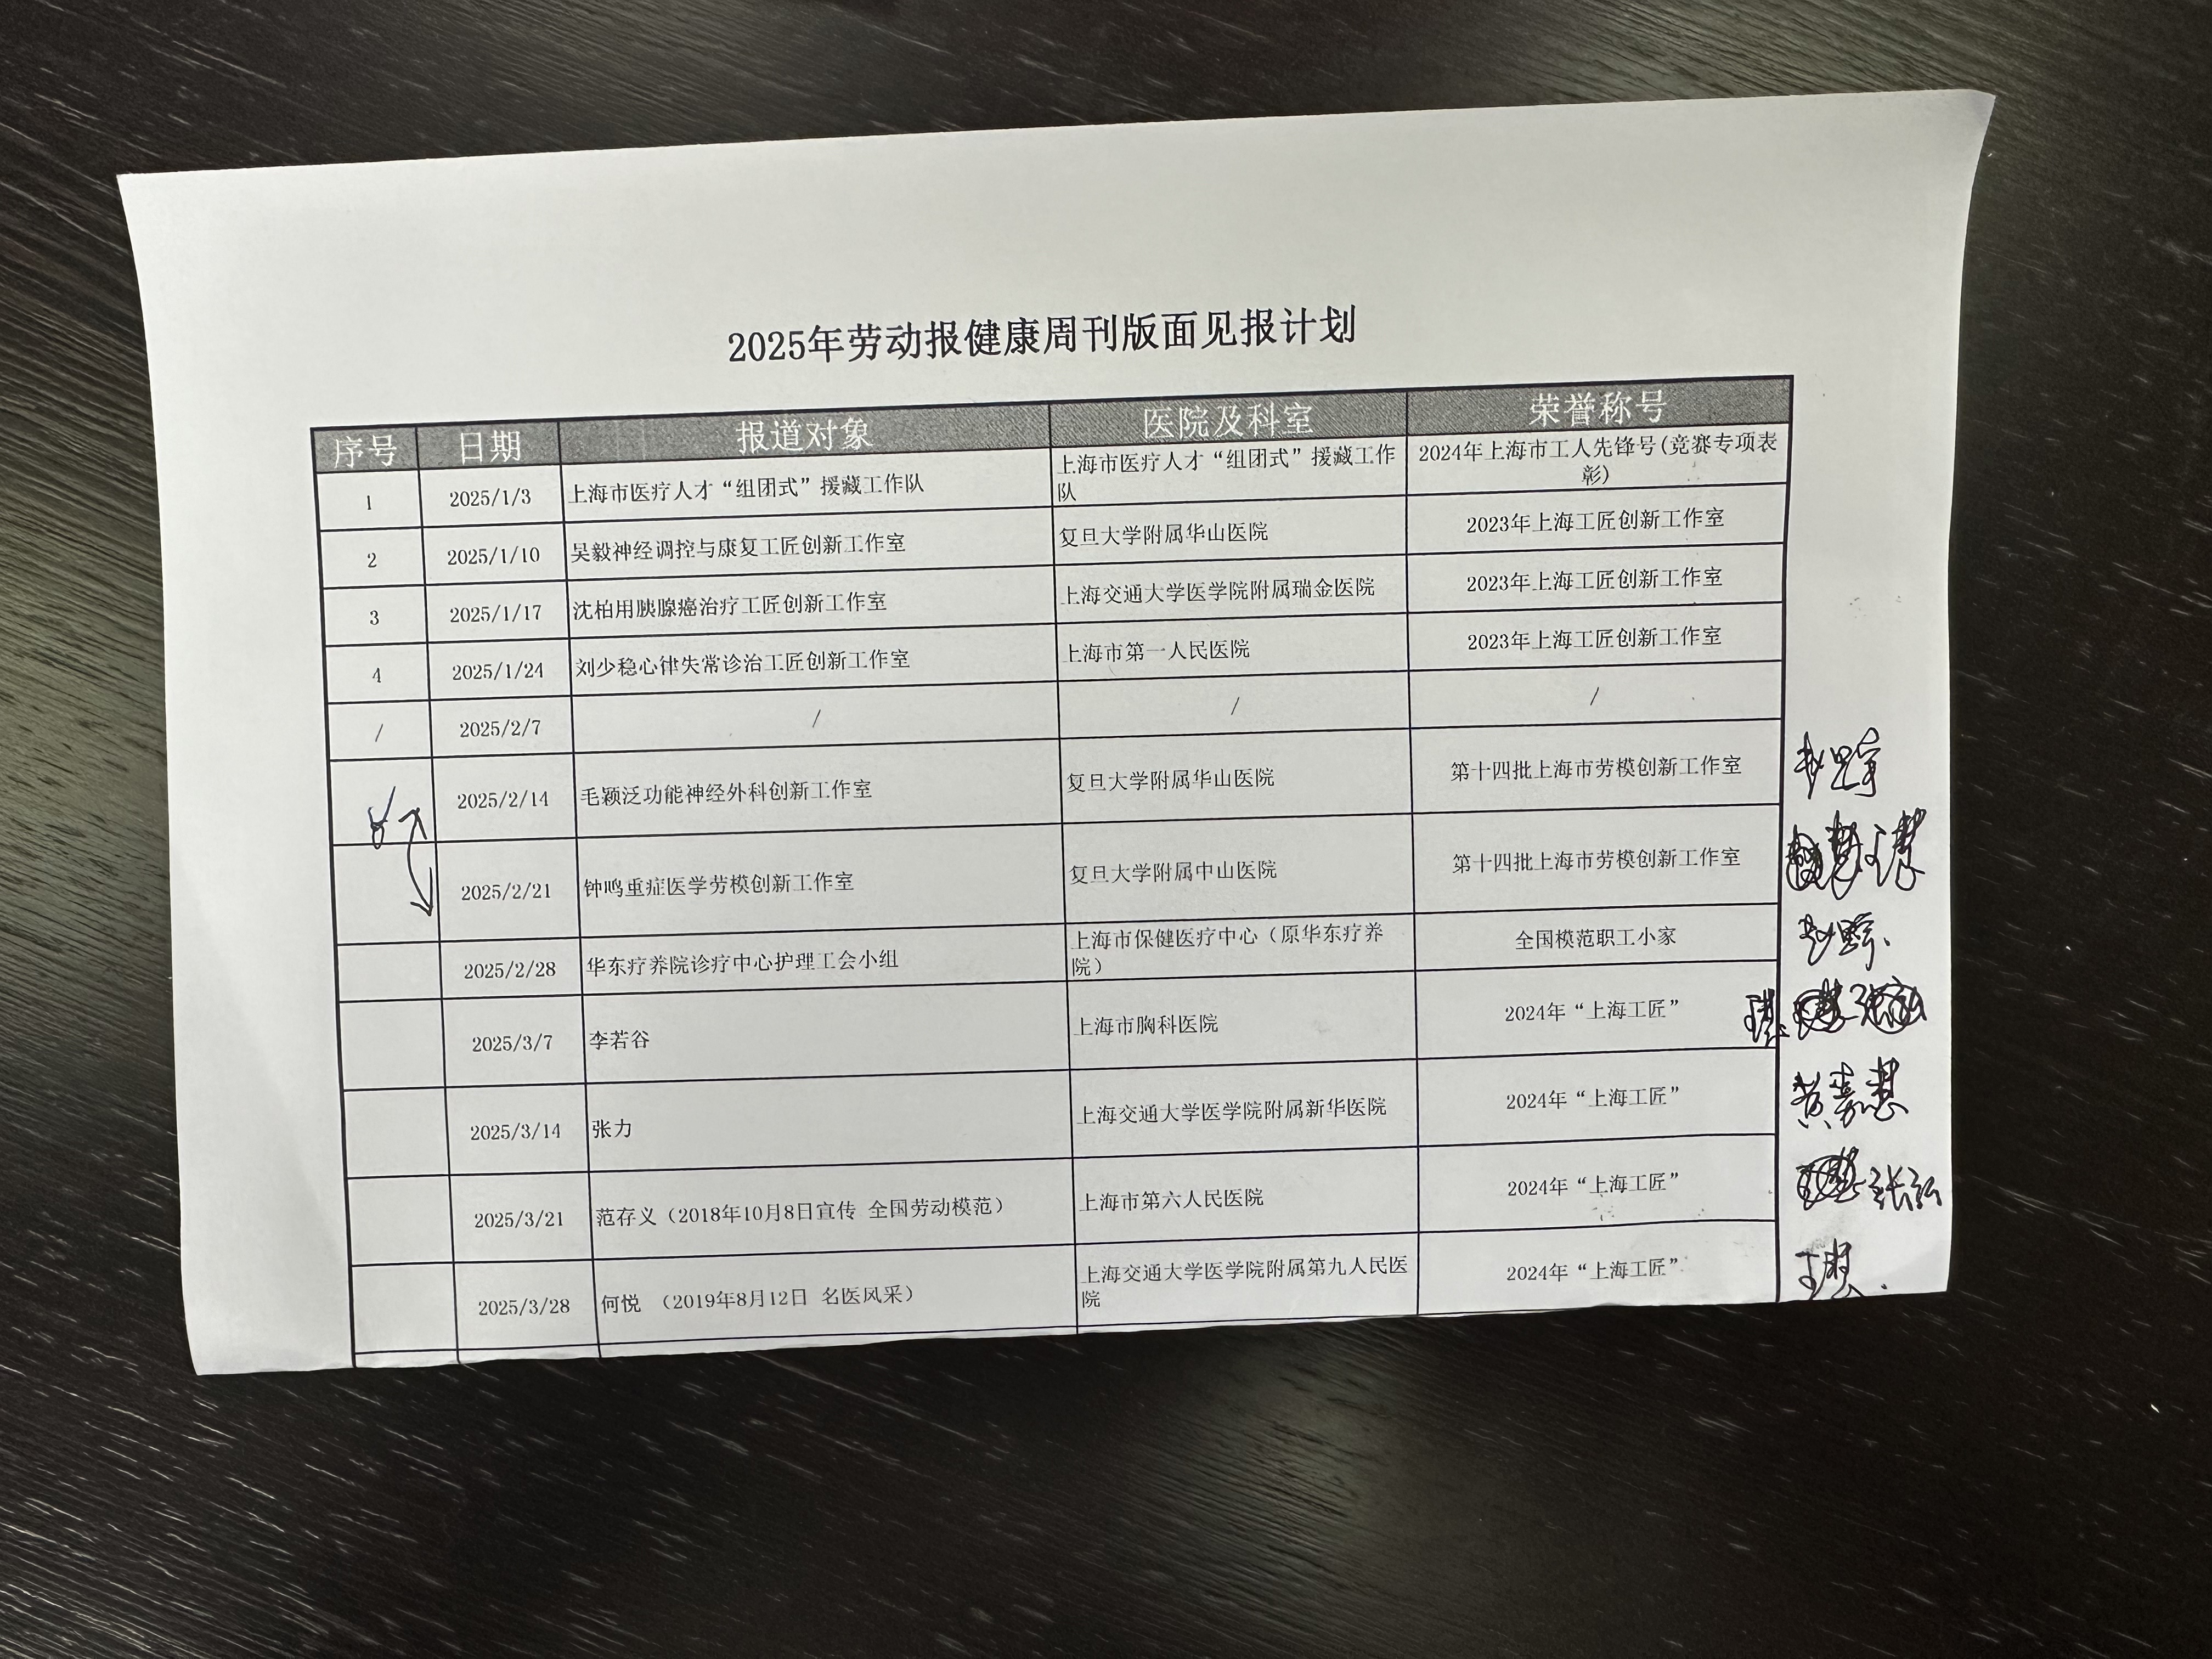 2025年劳动报健康周刊版面见报计划
序号 日期 报道对象 医院及科室 荣誉称号
1 2025/1/3 上海市医疗人才“组团式”援藏工作队 上海市医疗人才“组团式”援藏工作队 2024年上海市工人先锋号(竞赛专项表彰)
2 2025/1/10 吴毅神经调控与康复工匠创新工作室 复旦大学附属华山医院 2023年上海工匠创新工作室
3 2025/1/17 沈柏用胰腺癌治疗工匠创新工作室 上海交通大学医学院附属瑞金医院 2023年上海工匠创新工作室
4 2025/1/24 刘少稳心律失常诊治工匠创新工作室 上海市第一人民医院 2023年上海工匠创新工作室
/ 2025/2/7 / / /
2025/2/14 毛颖泛功能神经外科创新工作室 复旦大学附属华山医院 第十四批上海市劳模创新工作室
2025/2/21 钟鸣重症医学劳模创新工作室 复旦大学附属中山医院 第十四批上海市劳模创新工作室
2025/2/28 华东疗养院诊疗中心护理工会小组 上海市保健医疗中心（原华东疗养院） 全国模范职工小家
2025/3/7 李若谷 上海市胸科医院 2024年“上海工匠”
2025/3/14 张力 上海交通大学医学院附属新华医院 2024年“上海工匠” 黄嘉慧
2025/3/21 范存义（2018年10月8日宣传 全国劳动模范） 上海市第六人民医院 2024年“上海工匠”
2025/3/28 何悦 （2019年8月12日 名医风采） 上海交通大学医学院附属第九人民医院 2024年“上海工匠”